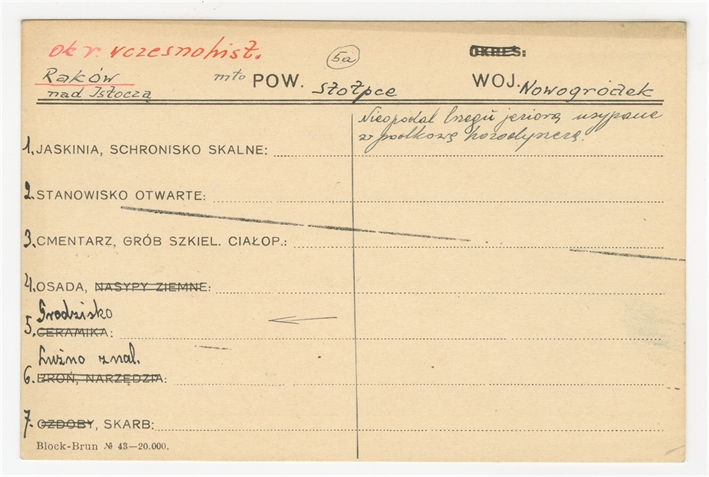 okr. wczesnohist.
5a
OKRES:
Raków
nad Isłoczą
mto POW. Stołpce
WOJ. Nowogródek
Nieopodal brzegu jeziora usypane
w podkowę horodyszcze.
1. JASKINIA, SCHRONISKO SKALNE:
2. STANOWISKO OTWARTE:
3. CMENTARZ, GRÓB SZKIEL. CIAŁOP.:
4. OSADA, NASYPY ZIEMNE:
Grodzisko
5. CERAMIKA:
Luźno znal.
6. BROŃ, NARZĘDZIA:
7. OZDOBY, SKARB:
Block-Brun № 43—20.000.